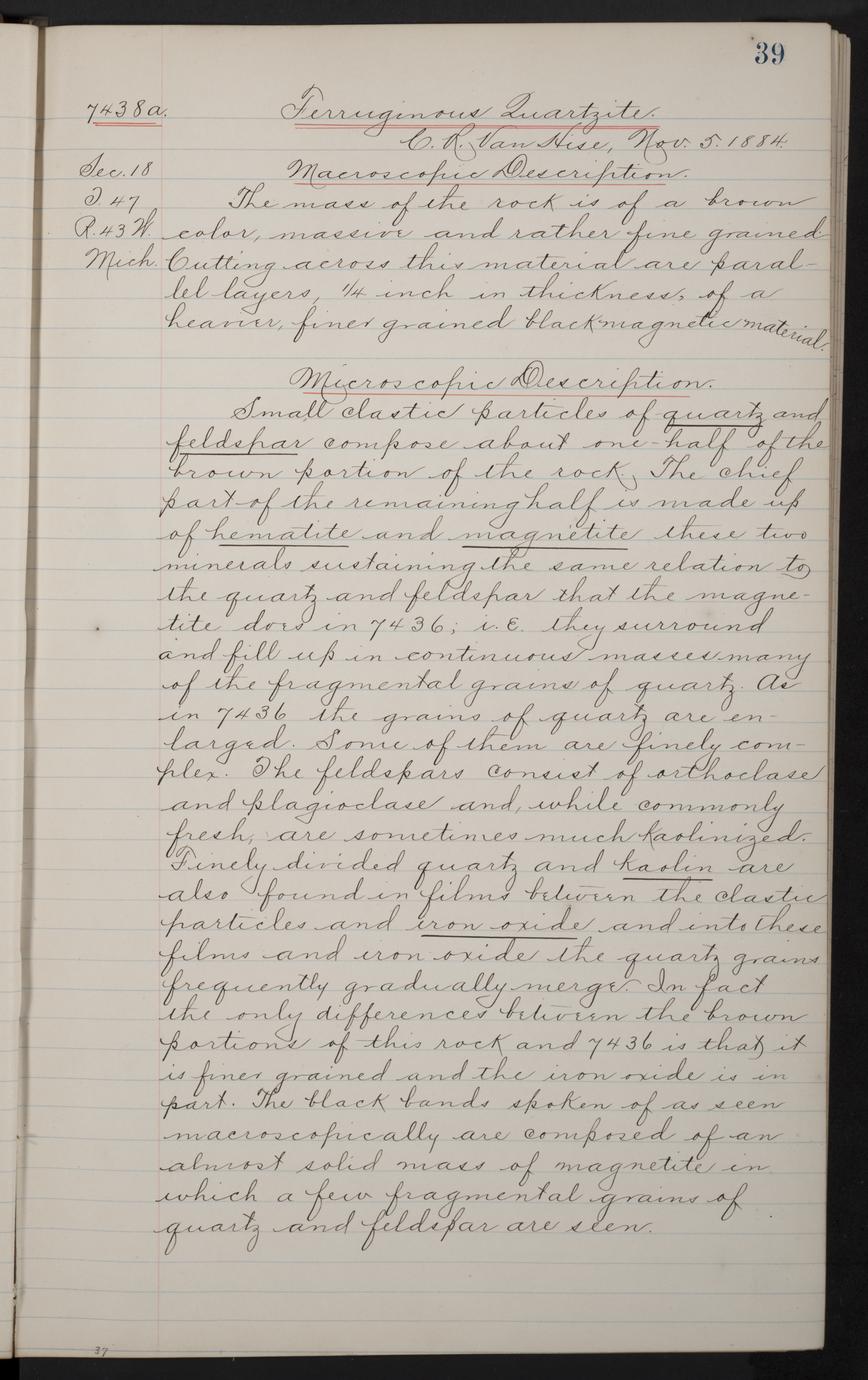 39
7438a. Ferruginous Quartzite.
C. R. Van Hise, Nov. 5. 1884.
Sec. 18 Macroscopic Description.
T. 47 The mass of the rock is of a brown
R. 43 W. color, massive and rather fine grained
Mich. Cutting across this material are paral-
lel layers, 1/4 inch in thickness, of a
heavier, finer grained black magnetic material.
Microscopic Description.
Small clastic particles of quartz and
feldspar compose about one-half of the
brown portion of the rock, The chief
part of the remaining half is made up
of hematite and magnetite these two
minerals sustaining the same relation to
the quartz and feldspar that the magne-
tite does in 7436; i.e. they surround
and fill up in continuous masses many
of the fragmental grains of quartz. As
in 7436 the grains of quartz are en-
larged. Some of them are finely com-
plex. The feldspars consist of orthoclase
and plagioclase and, while commonly
fresh, are sometimes much kaolinized.
Finely divided quartz and kaolin are
also found in films between the clastic
particles and iron oxide and into these
films and iron oxide the quartz grains
frequently gradually merge. In fact
the only differences between the brown
portions of this rock and 7436 is that it
is finer grained and the iron oxide is in
part. The black bands spoken of as seen
macroscopically are composed of an
almost solid mass of magnetite in
which a few fragmental grains of
quartz and feldspar are seen.
37